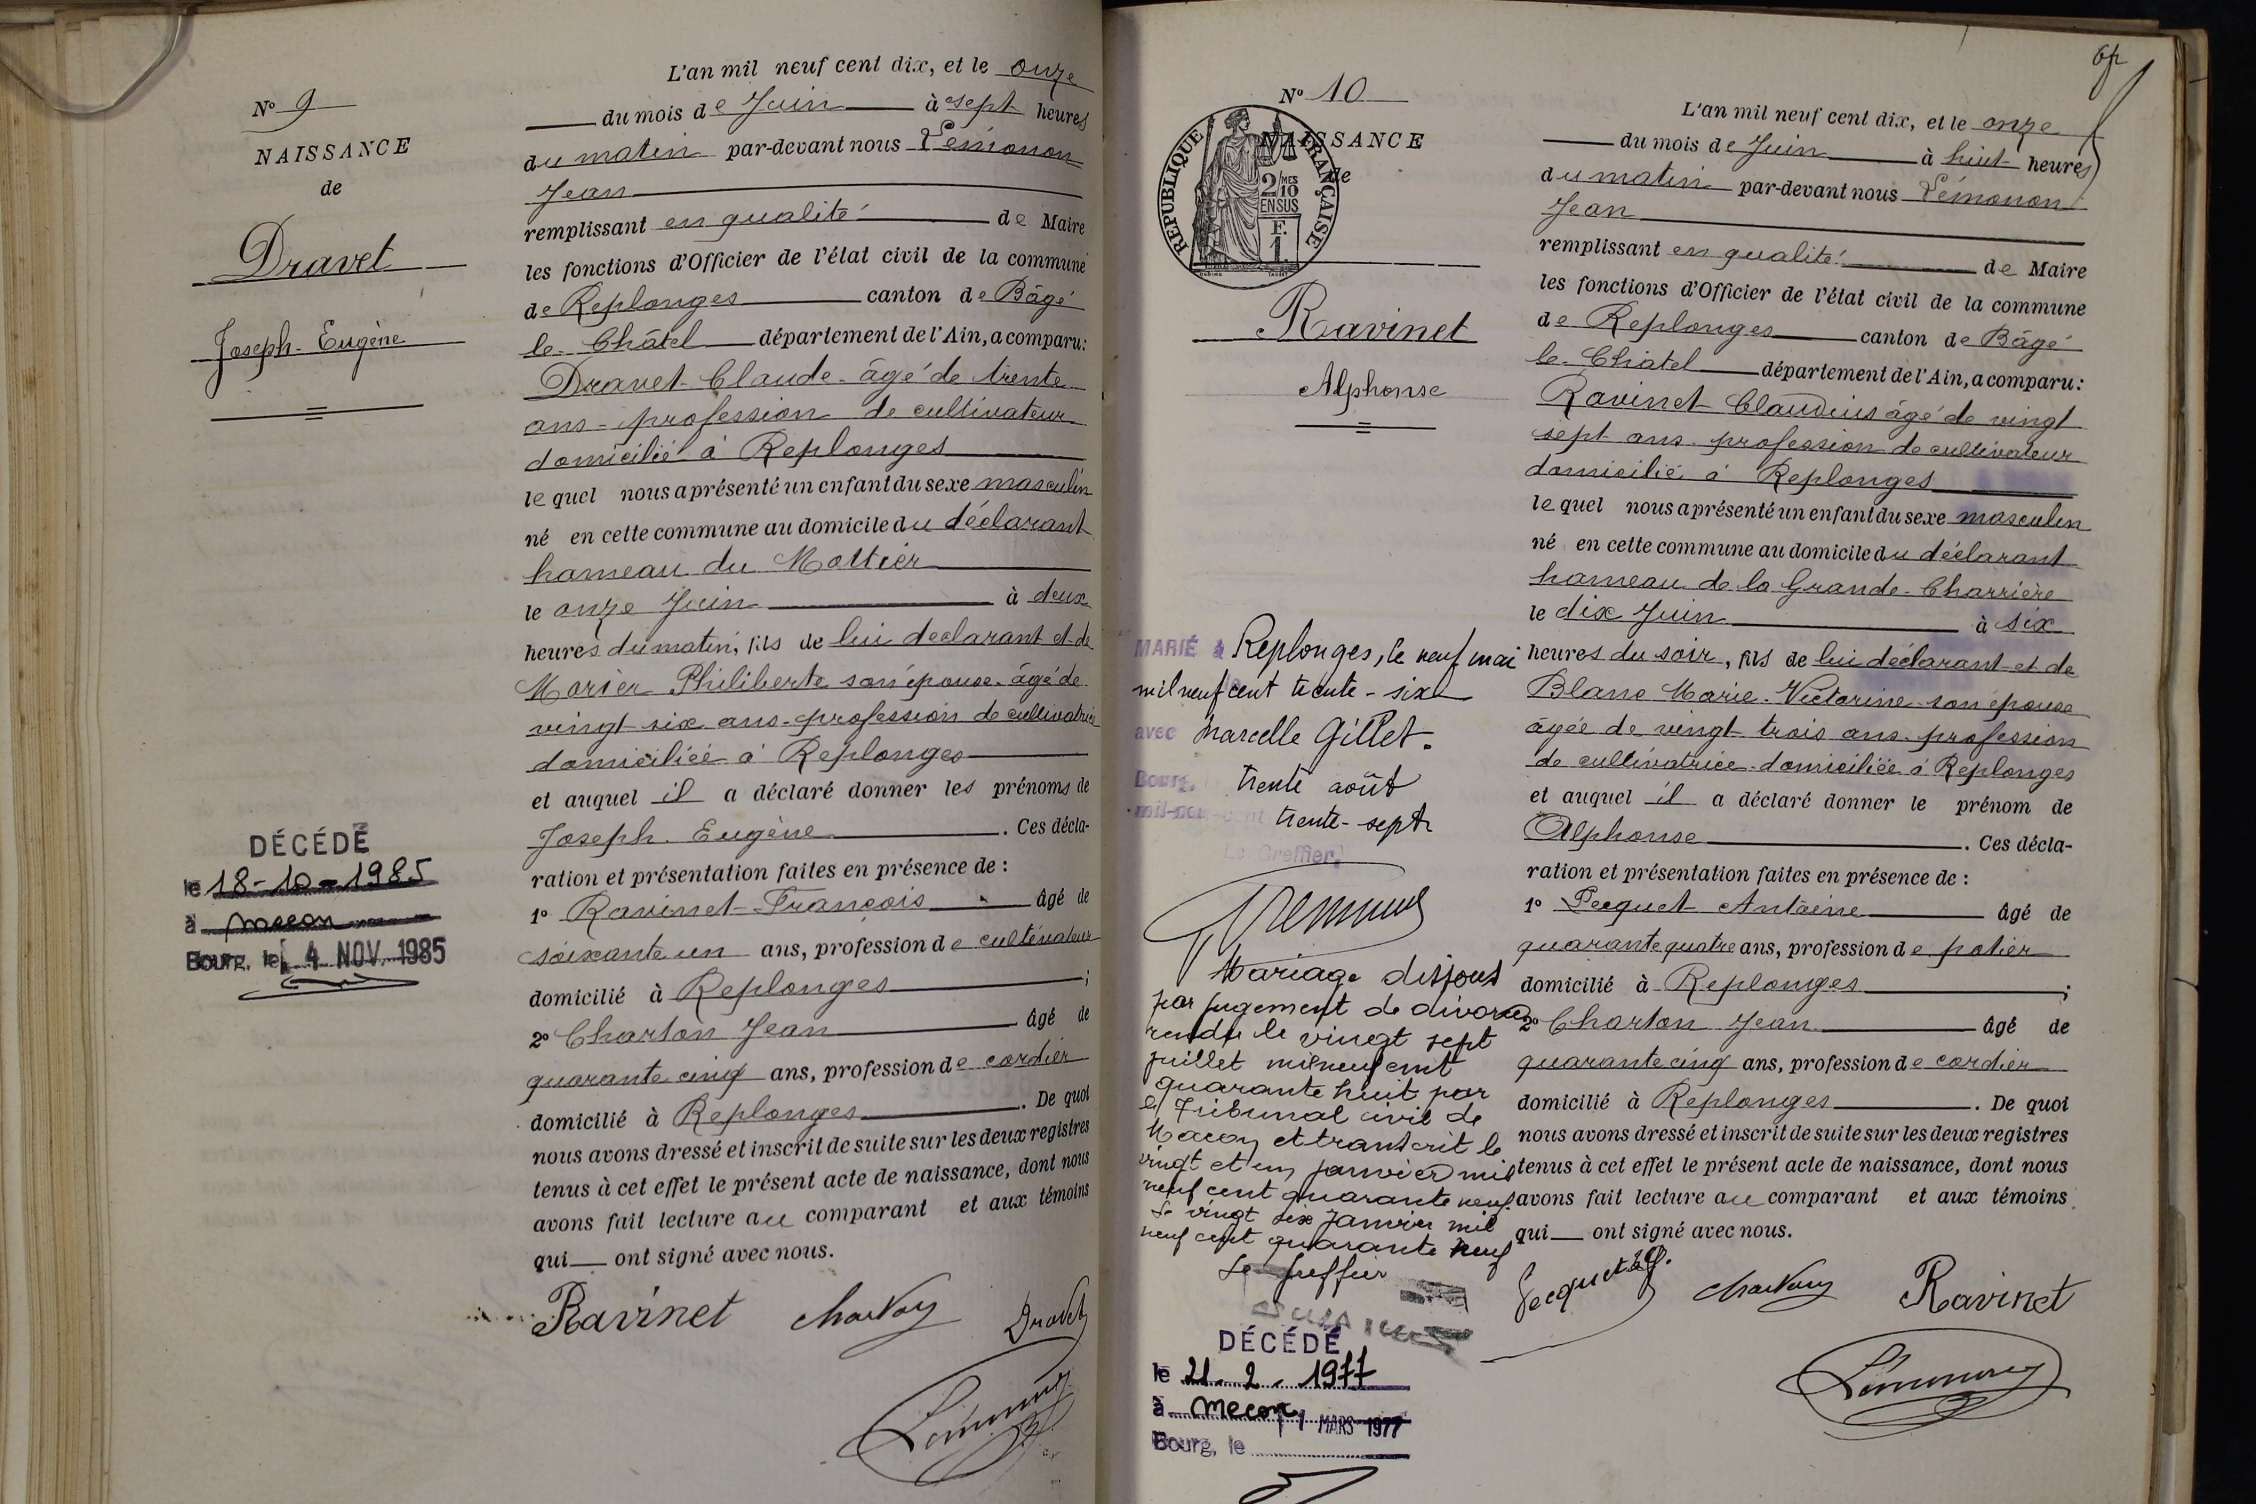 N° 9
NAISSANCE
de
Dravet
Joseph-Eugène
DÉCÉDÉ
le 18-10-1985
à Macon
Bourg, le 4 NOV. 1985
L'an mil neuf cent dix, et le onze
du mois de Juin à sept heures
du matin par-devant nous Lémonon
Jean
remplissant en qualité de Maire
les fonctions d'Officier de l'état civil de la commune
de Replonges canton de Bâgé
le Châtel département de l'Ain, a comparu:
Dravet Claude âgé de trente
ans profession de cultivateur
domicilié à Replonges
lequel nous a présenté un enfant du sexe masculin
né en cette commune au domicile du déclarant
hameau du Mottier
le onze Juin à deux
heures du matin, fils de lui déclarant et de
Morier Philiberte son épouse âgé de
vingt six ans profession de cultivatrice
domiciliée à Replonges
et auquel il a déclaré donner les prénoms de
Joseph Eugène. Ces décla-
ration et présentation faites en présence de :
1° Ravinet François âgé de
soixante un ans, profession de cultivateur
domicilié à Replonges ;
2° Charton Jean âgé de
quarante cinq ans, profession de cordier
domicilié à Replonges. De quoi
nous avons dressé et inscrit de suite sur les deux registres
tenus à cet effet le présent acte de naissance, dont nous
avons fait lecture au comparant et aux témoins
qui ont signé avec nous.
Ravinet Charton Dravet
Lémonon
6
N° 10
NAISSANCE
de
RÉPUBLIQUE FRANÇAISE
2/10 MES
EN SUS
F.
1
Ravinet
Alphonse
MARIÉ à Replonges, le neuf mai
mil neuf cent trente-six
avec Marcelle Gillet.
Bourg, trente août
mil-neuf-cent trente-sept
Le Greffier,
Mariage dissous
par jugement de divorce
rendu le vingt sept
juillet mil neuf cent
quarante huit par
le Tribunal civil de
Macon et transcrit le
vingt et un janvier mil
neuf cent quarante neuf.
Le vingt six Janvier mil
neuf cent quarante neuf
Le Greffier
DÉCÉDÉ
le 21.2.1977
à Macon
1 MARS 1977
Bourg, le
L'an mil neuf cent dix, et le onze
du mois de Juin à huit heures
du matin par-devant nous Lémonon
Jean
remplissant en qualité de Maire
les fonctions d'Officier de l'état civil de la commune
de Replonges canton de Bâgé
le Châtel département de l'Ain, a comparu:
Ravinet Claudius âgé de vingt
sept ans profession de cultivateur
domicilié à Replonges
lequel nous a présenté un enfant du sexe masculin
né en cette commune au domicile du déclarant
hameau de la Grande Charrière
le dix Juin à six
heures du soir, fils de lui déclarant et de
Blanc Marie Victorine son épouse
âgée de vingt trois ans profession
de cultivatrice domiciliée à Replonges
et auquel il a déclaré donner le prénom de
Alphonse. Ces décla-
ration et présentation faites en présence de :
1° Pecquet Antoine âgé de
quarante quatre ans, profession de potier
domicilié à Replonges ;
2° Charton Jean âgé de
quarante cinq ans, profession de cordier
domicilié à Replonges. De quoi
nous avons dressé et inscrit de suite sur les deux registres
tenus à cet effet le présent acte de naissance, dont nous
avons fait lecture au comparant et aux témoins
qui ont signé avec nous.
Pecquet Charton Ravinet
Lémonon